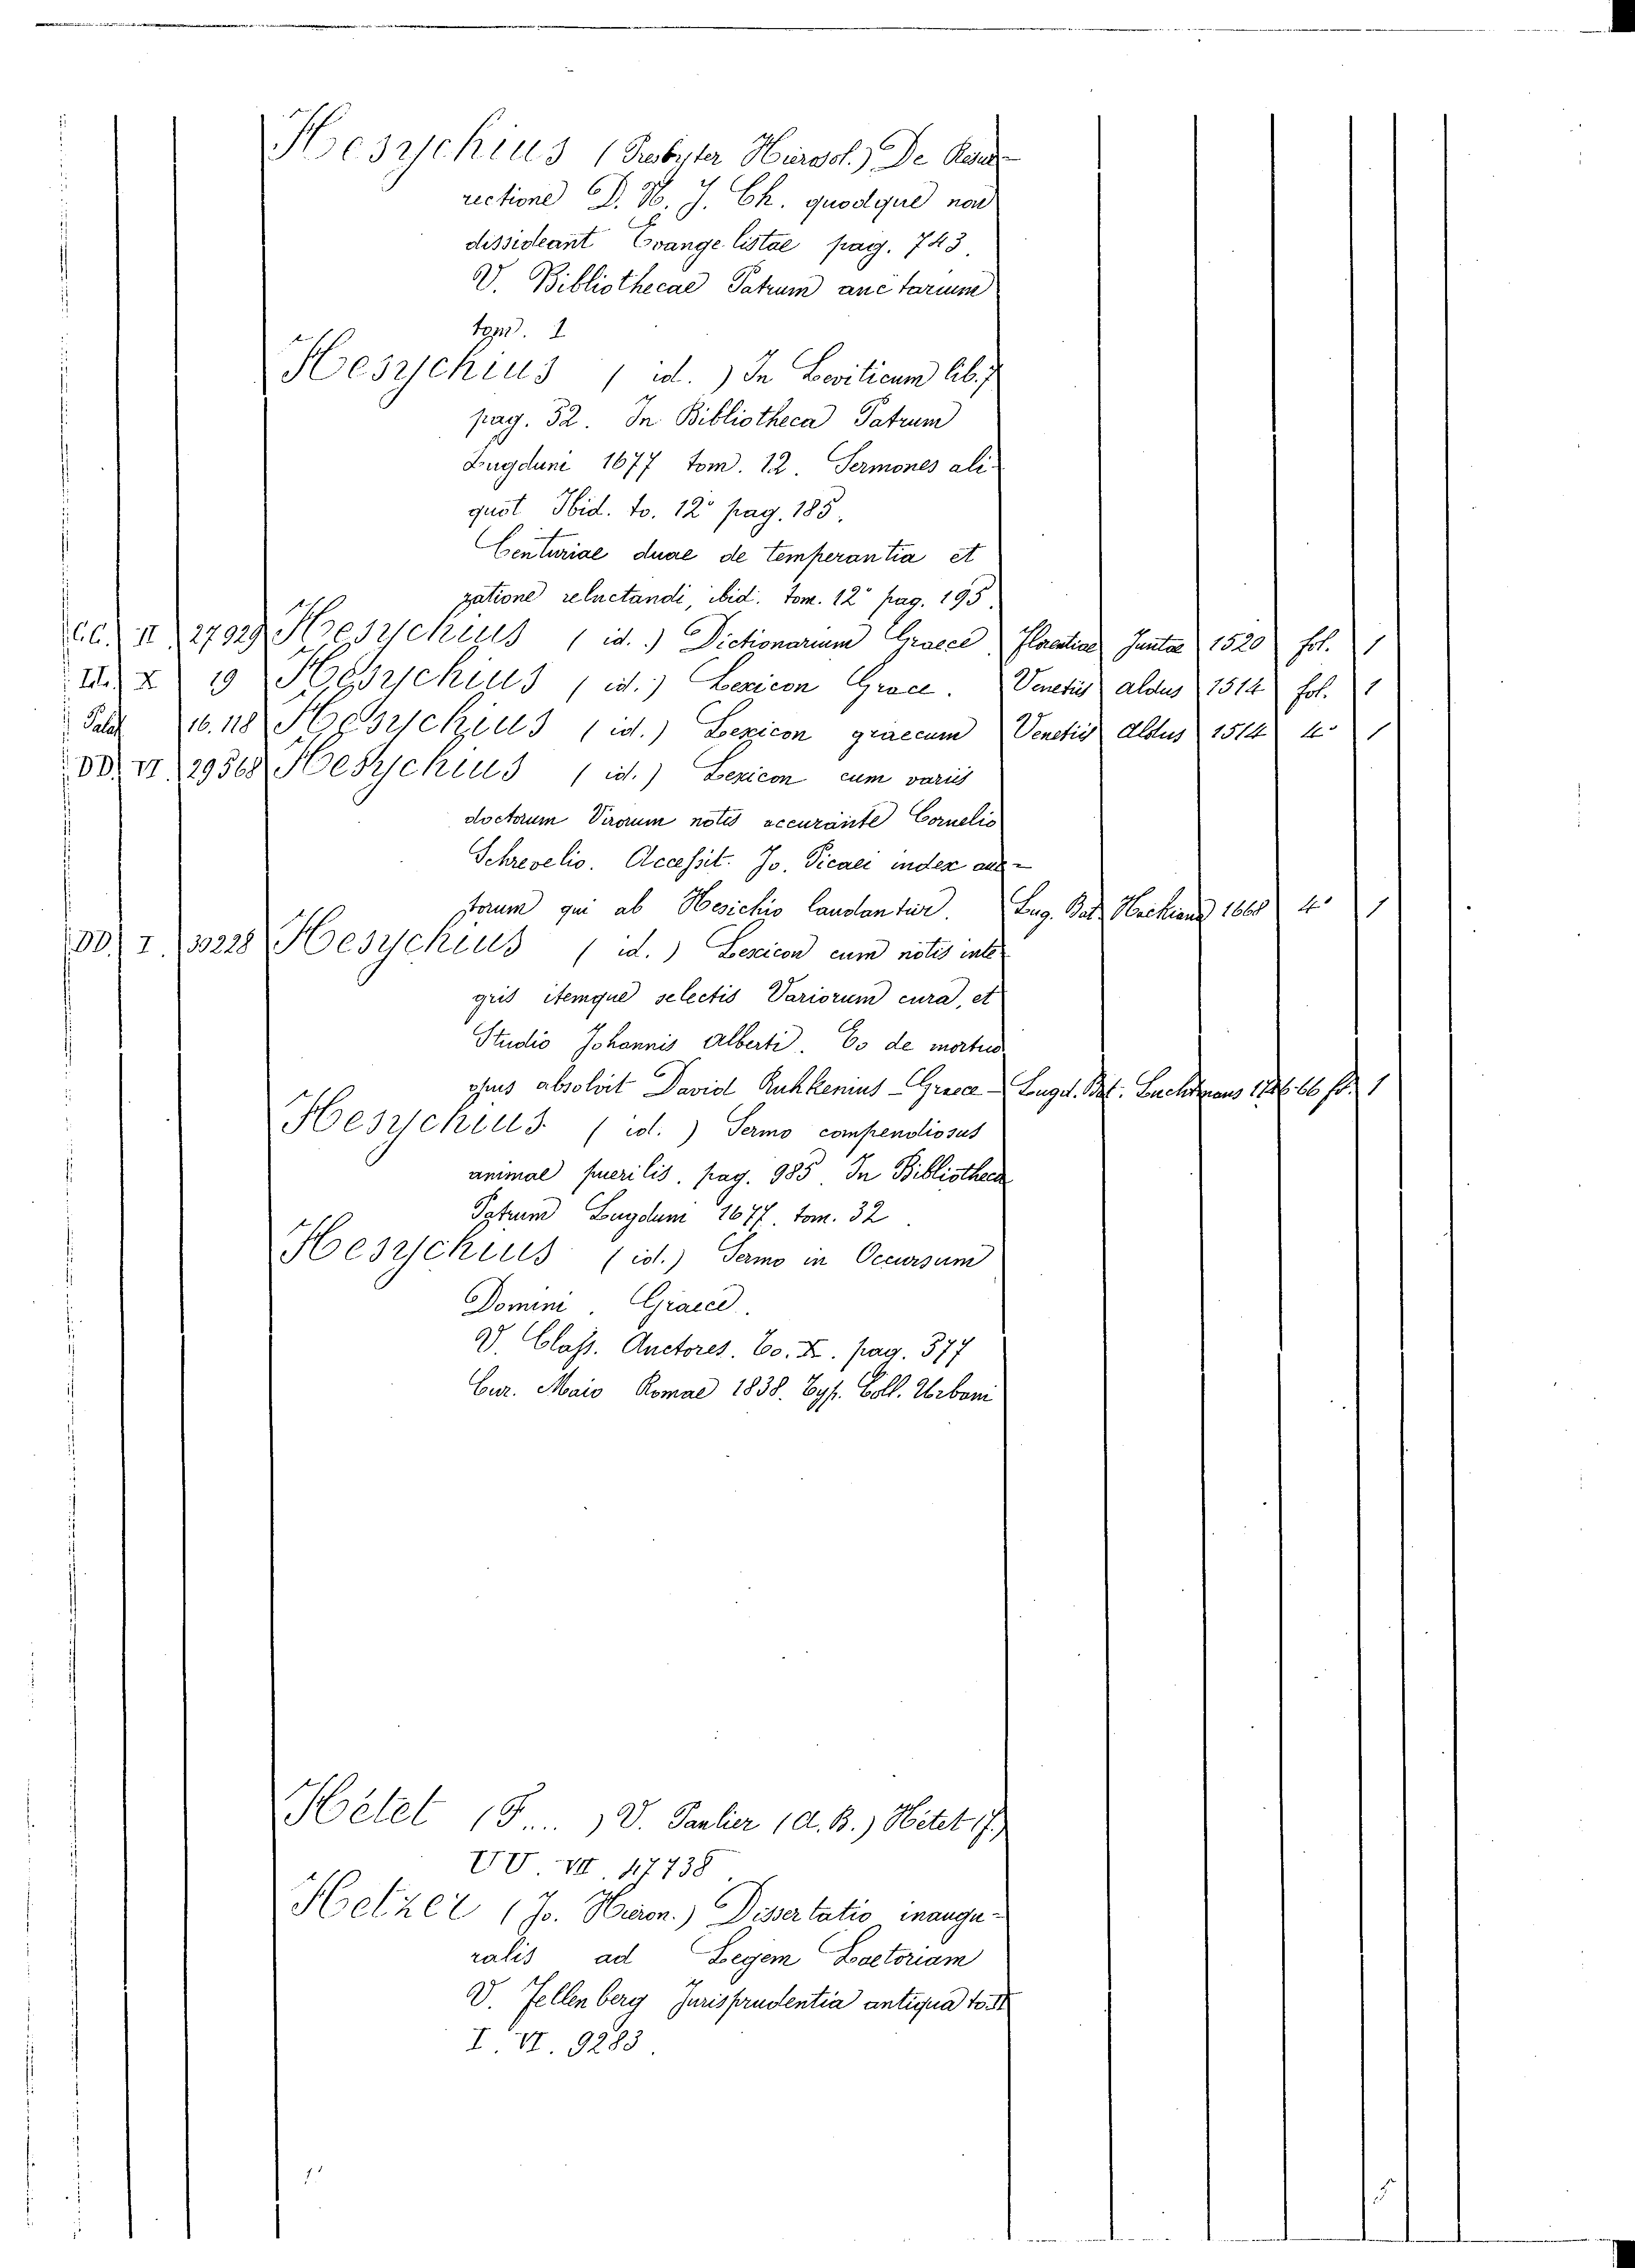 Hesychius (Presbyter Hierosol.) De Resur-
rectione D. N. J. Ch. quodque non
dissideant Evangelistae pag. 743.
V. Bibliothecae Patrum auctarium
tom. 1
Hesychius ( id. ) In Leviticum lib. 7
pag. 52. In Bibliotheca Patrum
Lugduni 1677 tom. 12. Sermones ali-
quot Ibid. to. 12° pag. 185.
Centuriae duae de temperantia et
ratione reluctandi, ibid. tom. 12° pag. 195.
CC. II 27929 Hesychius ( id. ) Dictionarium Graece. Florentiae Juntae 1520 fol. 1
X 19 Hesychius ( id. ) Lexicon Grace. Venetiis Aldus 1514 fol. 1
Palat 16.118 Hesychius ( id. ) Lexicon graecum Venetiis Aldus 1514 4° 1
DD. VI 29568 Hesychius ( id. ) Lexicon cum variis
doctorum Virorum notis accurante Cornelio
Schrevelio. Accessit. Jo. Picaei index auc-
torum qui ab Hesichio laudantur. Lug. Bat. Hackiana 1668 4° 1
DD. I. 30228 Hesychius ( id. ) Lexicon cum notis inte-
gris itemque selectis Variorum cura, et
Studio Johannis Alberti. Eo de mortuo
opus absolvit David Ruhkenius - Graece - Lugd. Bat. Luchtmans 1746.66 fo. 1
Hesychius ( id. ) Sermo compendiosus
animal puerilis. pag. 985. In Bibliotheca
Patrum Lugduni 1677. tom. 32.
Hesychius (id.) Sermo in Occursum
Domini. Graece.
V. Class. Auctores. To. X. pag. 577
Cur. Maio Romae 1838. Typ. Coll. Urbani
Hétet (F....) V. Paulier (A. B.) Hétet (F.)
VV. VII. 47738.
Hetzer (Jo. Hieron.) Dissertatio inaugu-
ralis ad Legem Laetoriam
V. Fellenberg Jurisprudentia antiqua to. II
I. VI. 9283.
5